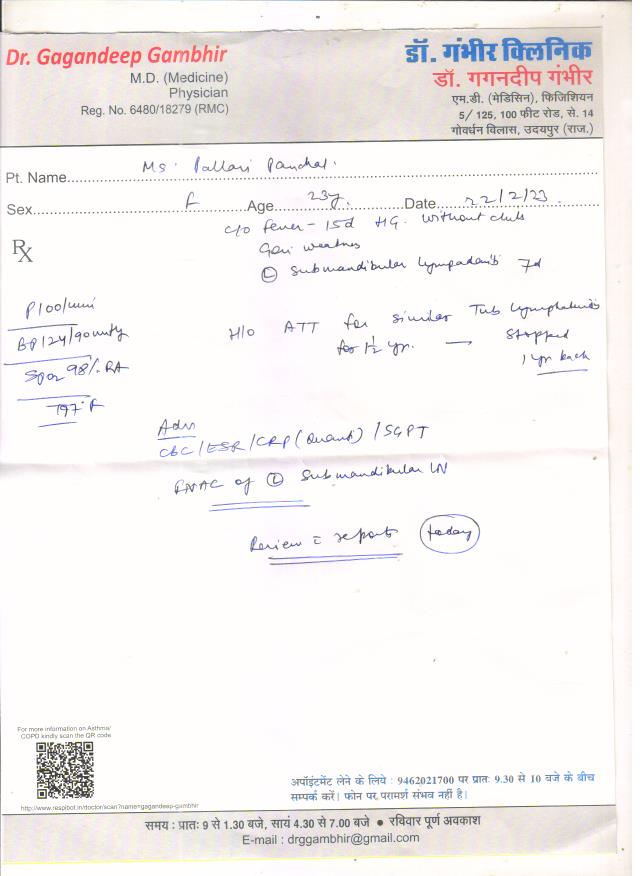 Dr. Gagandeep Gambhir
M.D. (Medicine)
Physician
Reg. No. 6480/18279 (RMC)
डॉ. गंभीर क्लिनिक
डॉ. गगनदीप गंभीर
एम.डी. (मेडिसिन), फिजिशियन
5/ 125, 100 फीट रोड, से. 14
गोवर्धन विलास, उदयपुर (राज.)
Pt. Name Ms. Pallavi Panchal.
Sex F Age 23y. Date 22/2/23
Rx
c/o fever - 15d HG. without chills
Gen weakness
(L) Submandibular lympadenitis 7d
P100/min
BP124/90mmHg
Spo2 98% RA
T97°F
H/o ATT for similar Tub lymphadenitis
for 1½ yr. → Stopped
1 yr back
Adv
CBC/ESR/CRP(Quant)/SGPT
FNAC of (L) Submandibular LN
Review c̄ reports today
For more information on Asthma/
COPD kindly scan the QR code
http://www.respibot.in/doctor/scan?name=gagandeep-gambhir
अपॉइंटमेंट लेने के लिये : 9462021700 पर प्रातः 9.30 से 10 बजे के बीच
सम्पर्क करें। फोन पर परामर्श संभव नहीं है।
समय : प्रातः 9 से 1.30 बजे, सायं 4.30 से 7.00 बजे ● रविवार पूर्ण अवकाश
E-mail : drggambhir@gmail.com